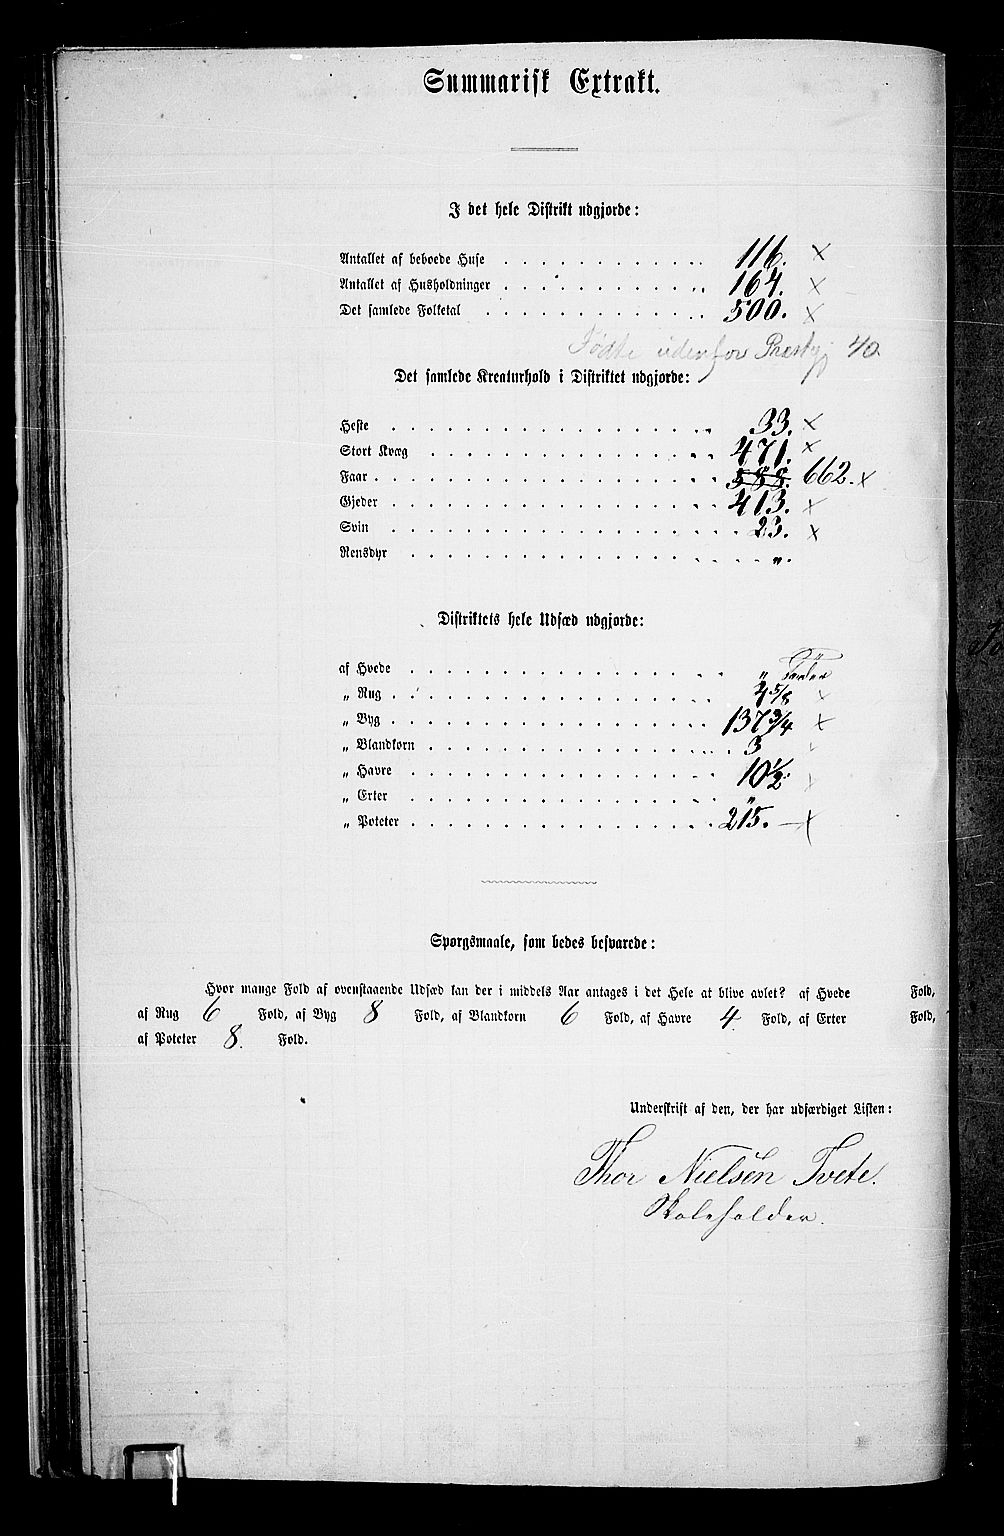 Summarisk Extrakt.
I det hele Distrikt udgjorde:
Antallet af beboede Huse . . . . . . . . . . . 116.
Antallet af Husholdninger . . . . . . . . . . . 164.
Det samlede Folketal . . . . . . . . . . . 500.
Fødte udenfor Præstgj 40.
Det samlede Kreaturhold i Distriktet udgjorde:
Heste . . . . . . . . . . . 33.
Stort Kvæg . . . . . . . . . . . 471.
Faar . . . . . . . . . . . 588. 662.
Gjeder . . . . . . . . . . . 413.
Svin . . . . . . . . . . . 23.
Rensdyr . . . . . . . . . . . „.
Distriktets hele Udsæd udgjorde:
af Hvede . . . . . . . . . . . „ Tønder
„ Rug . . . . . . . . . . . 4 5/8
„ Byg . . . . . . . . . . . 137 3/4
„ Blandkorn . . . . . . . . . . . 3
„ Havre . . . . . . . . . . . 10 1/2
„ Erter . . . . . . . . . . . „
„ Poteter . . . . . . . . . . . 215. —
Spørgsmaale, som bedes besvarede:
Hvor mange Fold af ovenstaaende Udsæd kan der i middels Aar antages i det Hele at blive avlet? af Hvede Fold,
af Rug 6 Fold, af Byg 8 Fold, af Blandkorn 6 Fold, af Havre 4 Fold, af Erter Fold,
af Poteter 8. Fold.
Underskrift af den, der har udfærdiget Listen:
Thor Nielsen Tvete.
Skoleholder.